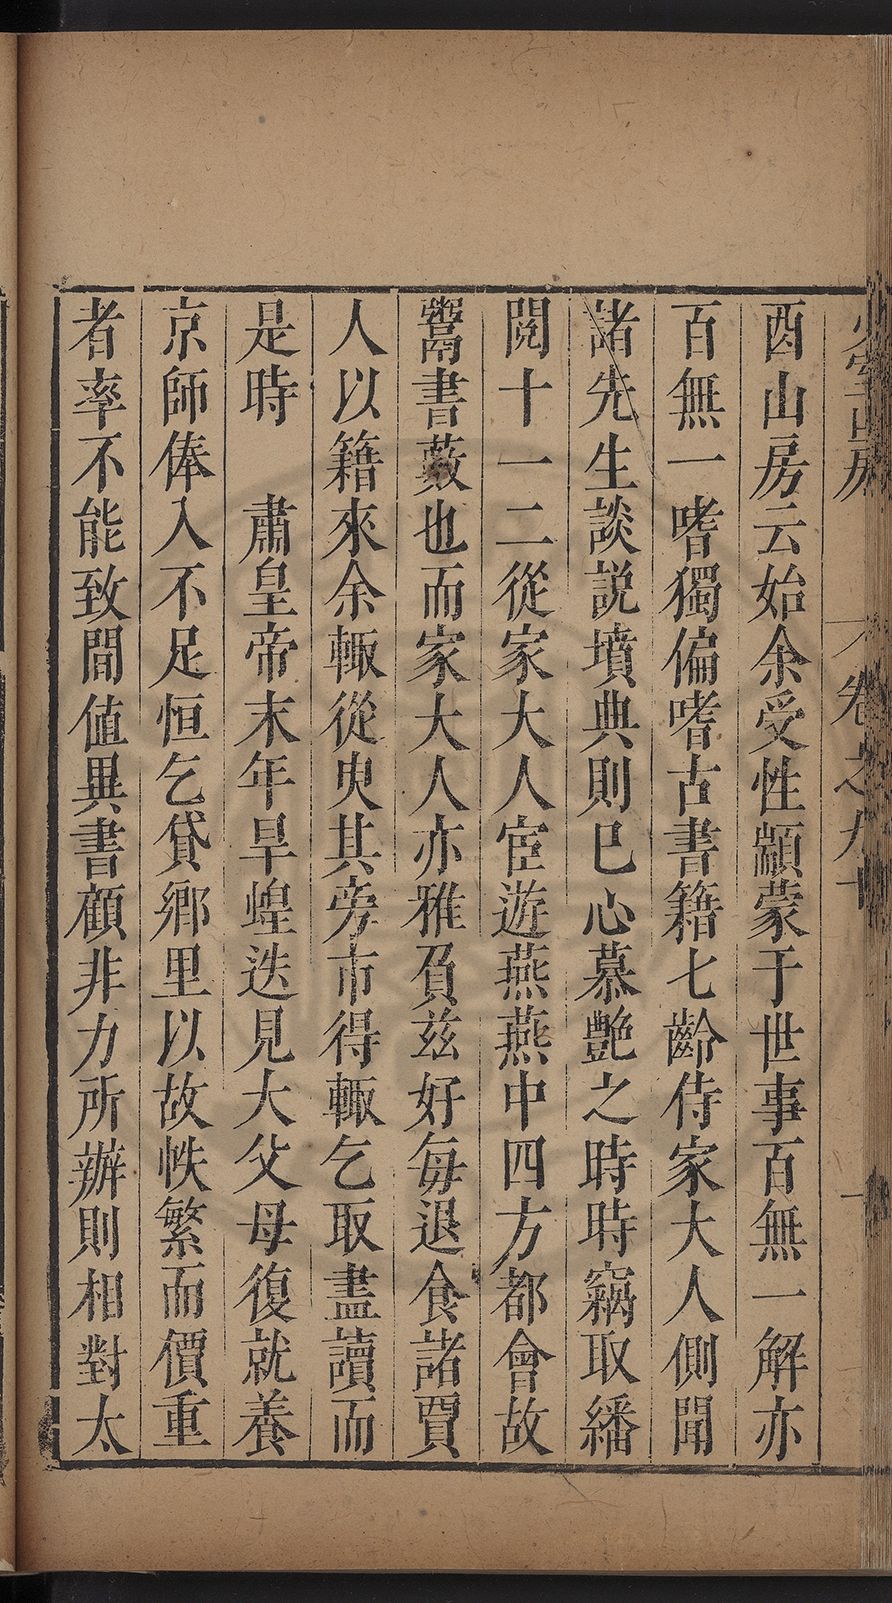 少室山房
卷之九十
一
酉山房云始余受性顓蒙于世事百無一解亦
百無一嗜獨偏嗜古書籍七齡侍家大人側聞
諸先生談説墳典則巳心慕艶之時時竊取繙
閱十一二從家大人宦遊燕燕中四方都會故
鬻書藪也而家大人亦雅負兹好每退食諸賈
人以籍來余輒從臾其旁市得輒乞取盡讀而
是時　肅皇帝末年旱蝗迭見大父母復就養
京師俸入不足恒乞貸鄉里以故帙繁而價重
者率不能致間値異書顧非力所辦則相對太